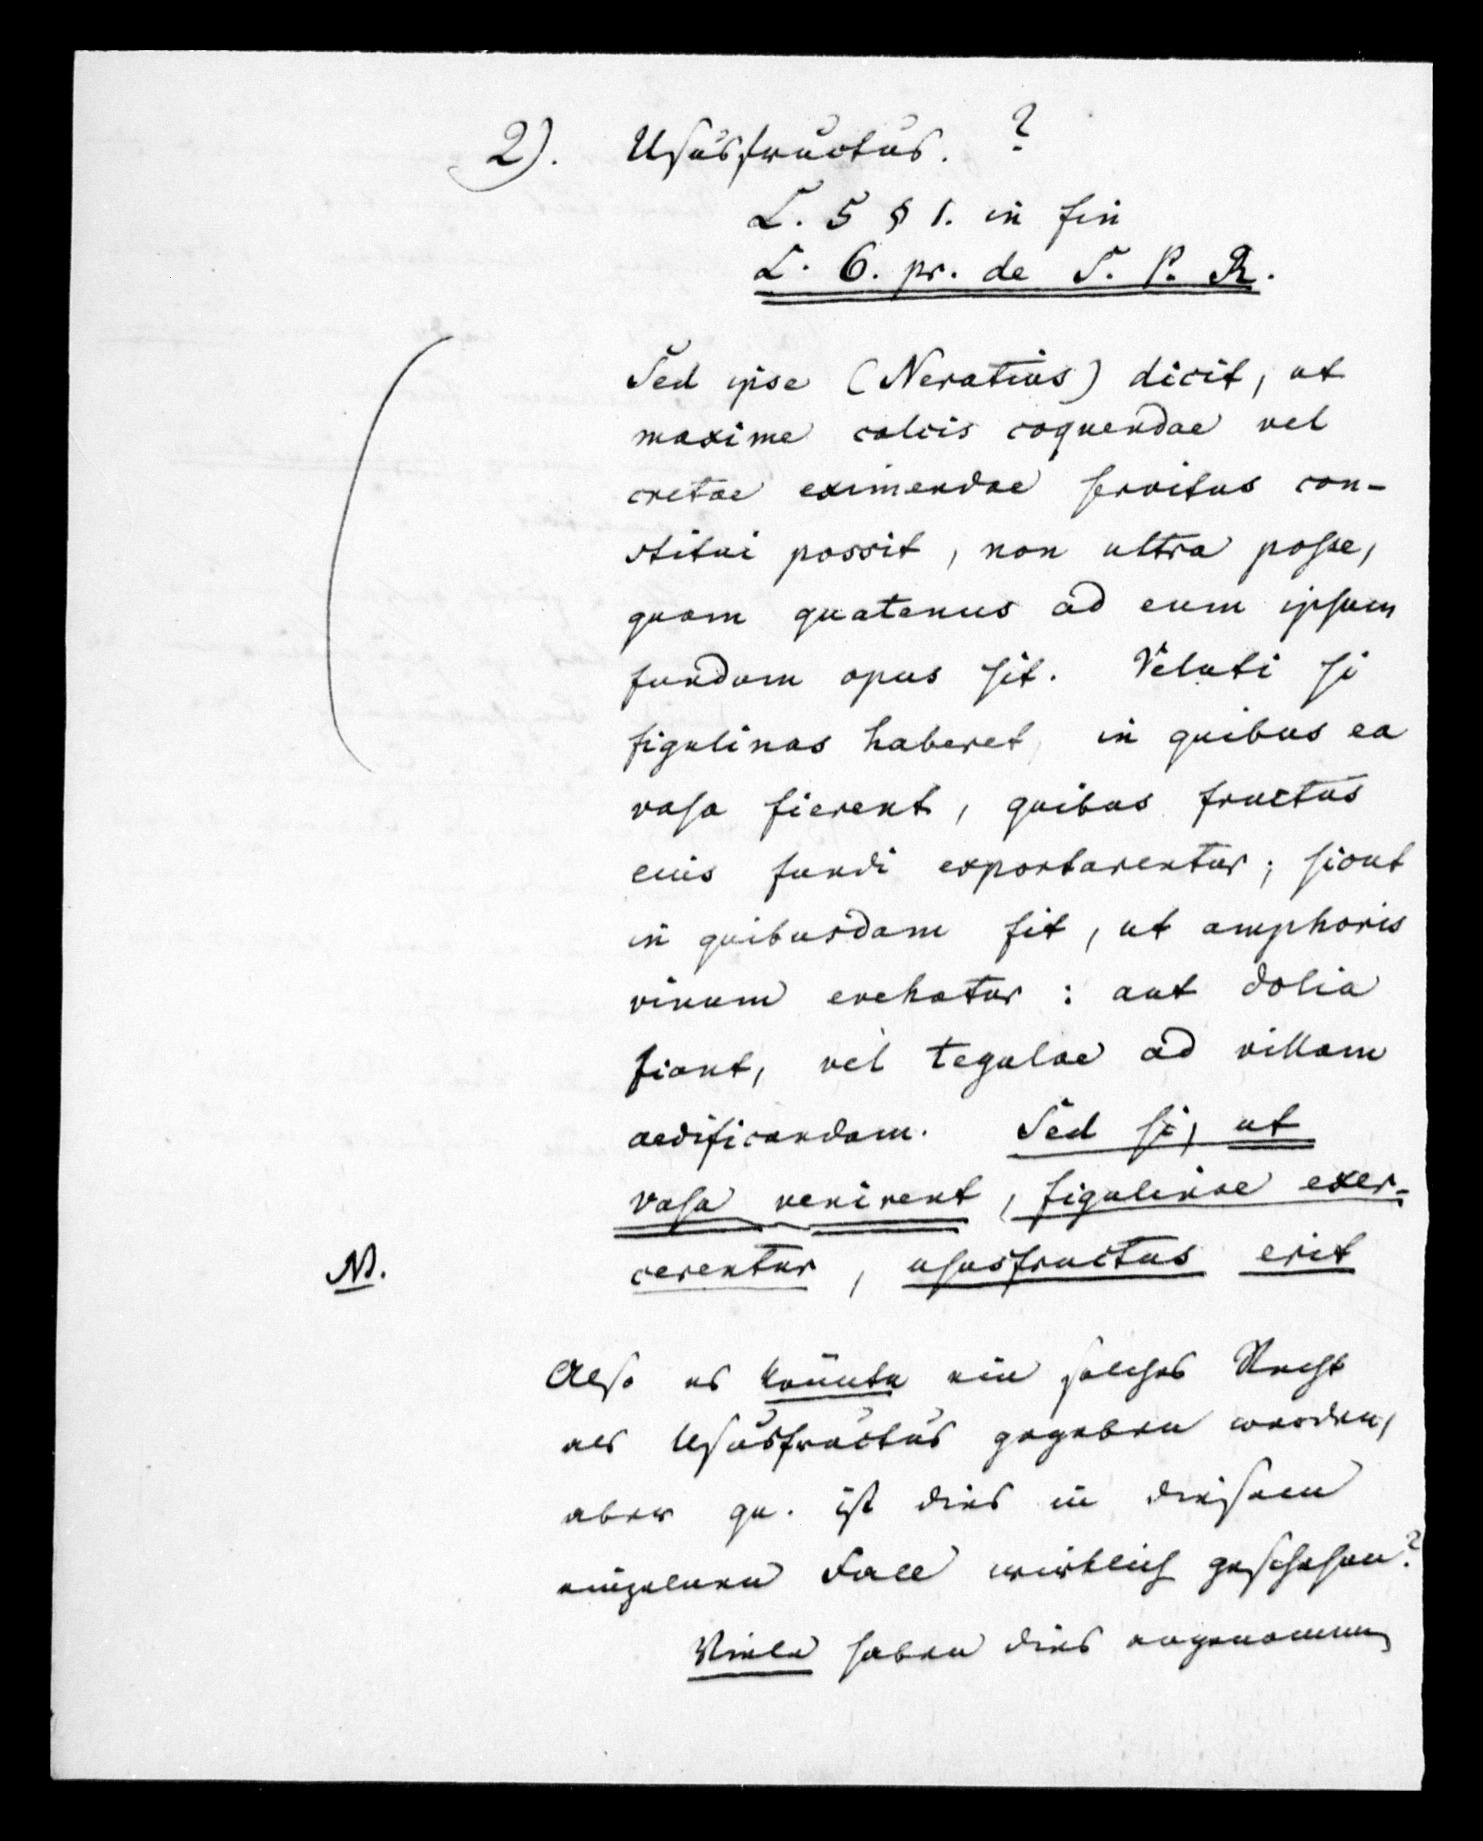 2). Ususfructus. ?
L. 5 § 1. in fin
L. 6. pr. de S. P. R.
Sed ipse (Neratius) dicit, ut
maxime calcis coquendae vel
cretae eximendae servitus con-
stitui possit, non ultra posse,
quam quatenus ad eum ipsum
fundum opus sit. Veluti si
figulinas haberet, in quibus ea
vasa fierent, quibus fructus
eius fundi exportarentur; sicut
in quibusdam fit, ut amphoris
vinum evehatur : aut dolia
fiant, vel tegulae ad villam
aedificandam. Sed si, ut
vasa venirent, figulinae exer-
N. cerentur, ususfructus erit
Also es könnte ein solches Recht
als Ususfructus gegeben werden,
aber qu. ist dies in diesem
einzelnen Fall wirklich geschehen?
Viele haben dies angenommen